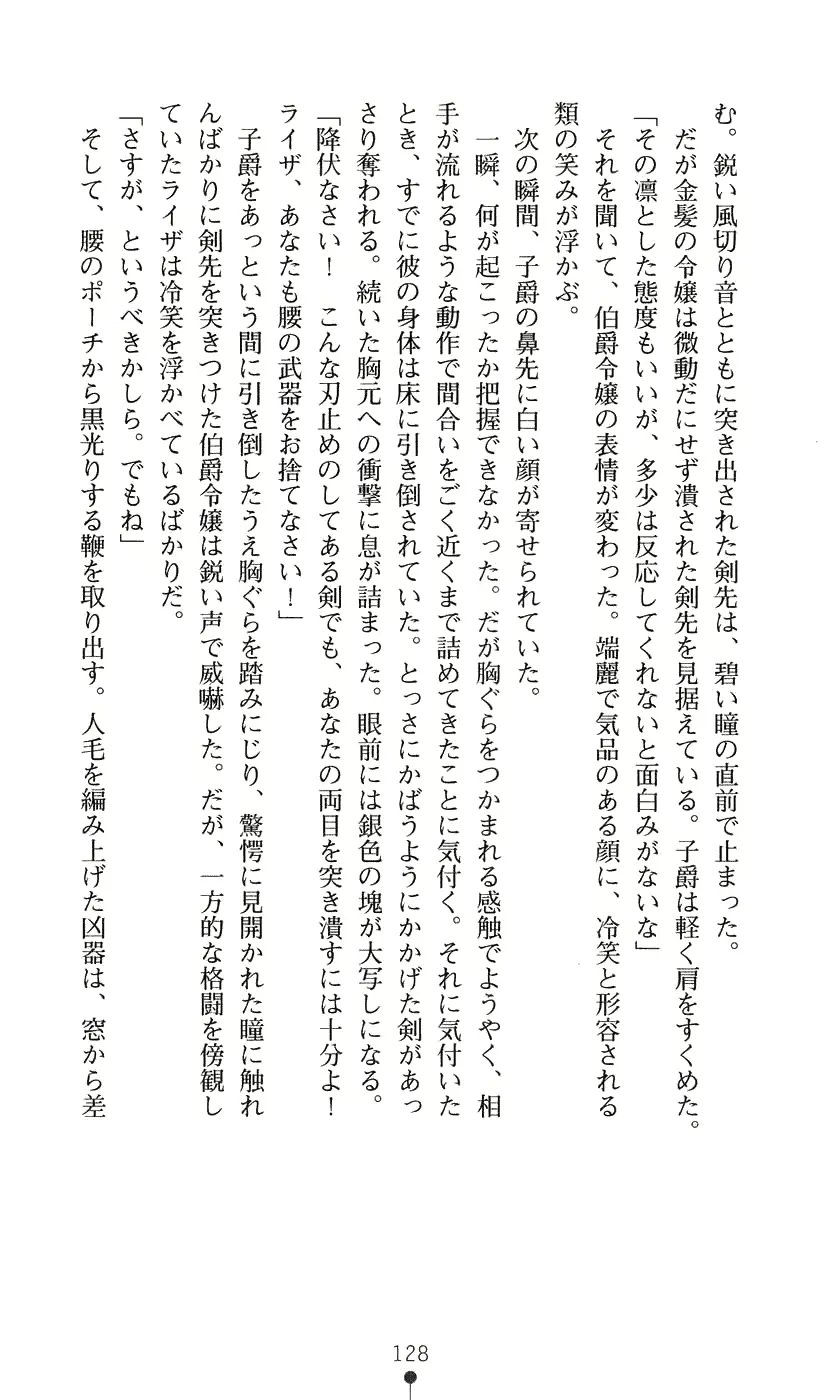 む。鋭い風切り音とともに突き出された剣先は、碧い瞳の直前で止まった。
　だが金髪の令嬢は微動だにせず潰された剣先を見据えている。子爵は軽く肩をすくめた。
「その凛とした態度もいいが、多少は反応してくれないと面白みがないな」
　それを聞いて、伯爵令嬢の表情が変わった。端麗で気品のある顔に、冷笑と形容される
類の笑みが浮かぶ。
　次の瞬間、子爵の鼻先に白い顔が寄せられていた。
　一瞬、何が起こったか把握できなかった。だが胸ぐらをつかまれる感触でようやく、相
手が流れるような動作で間合いをごく近くまで詰めてきたことに気付く。それに気付いた
とき、すでに彼の身体は床に引き倒されていた。とっさにかばうようにかかげた剣があっ
さり奪われる。続いた胸元への衝撃に息が詰まった。眼前には銀色の塊が大写しになる。
「降伏なさい！　こんな刃止めのしてある剣でも、あなたの両目を突き潰すには十分よ！
ライザ、あなたも腰の武器をお捨てなさい！」
　子爵をあっという間に引き倒したうえ胸ぐらを踏みにじり、驚愕に見開かれた瞳に触れ
んばかりに剣先を突きつけた伯爵令嬢は鋭い声で威嚇した。だが、一方的な格闘を傍観し
ていたライザは冷笑を浮かべているばかりだ。
「さすが、というべきかしら。でもね」
　そして、腰のポーチから黒光りする鞭を取り出す。人毛を編み上げた凶器は、窓から差
128